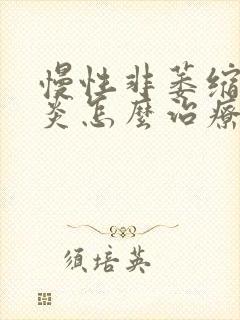 慢性非萎缩
炎怎麼治療
须培英